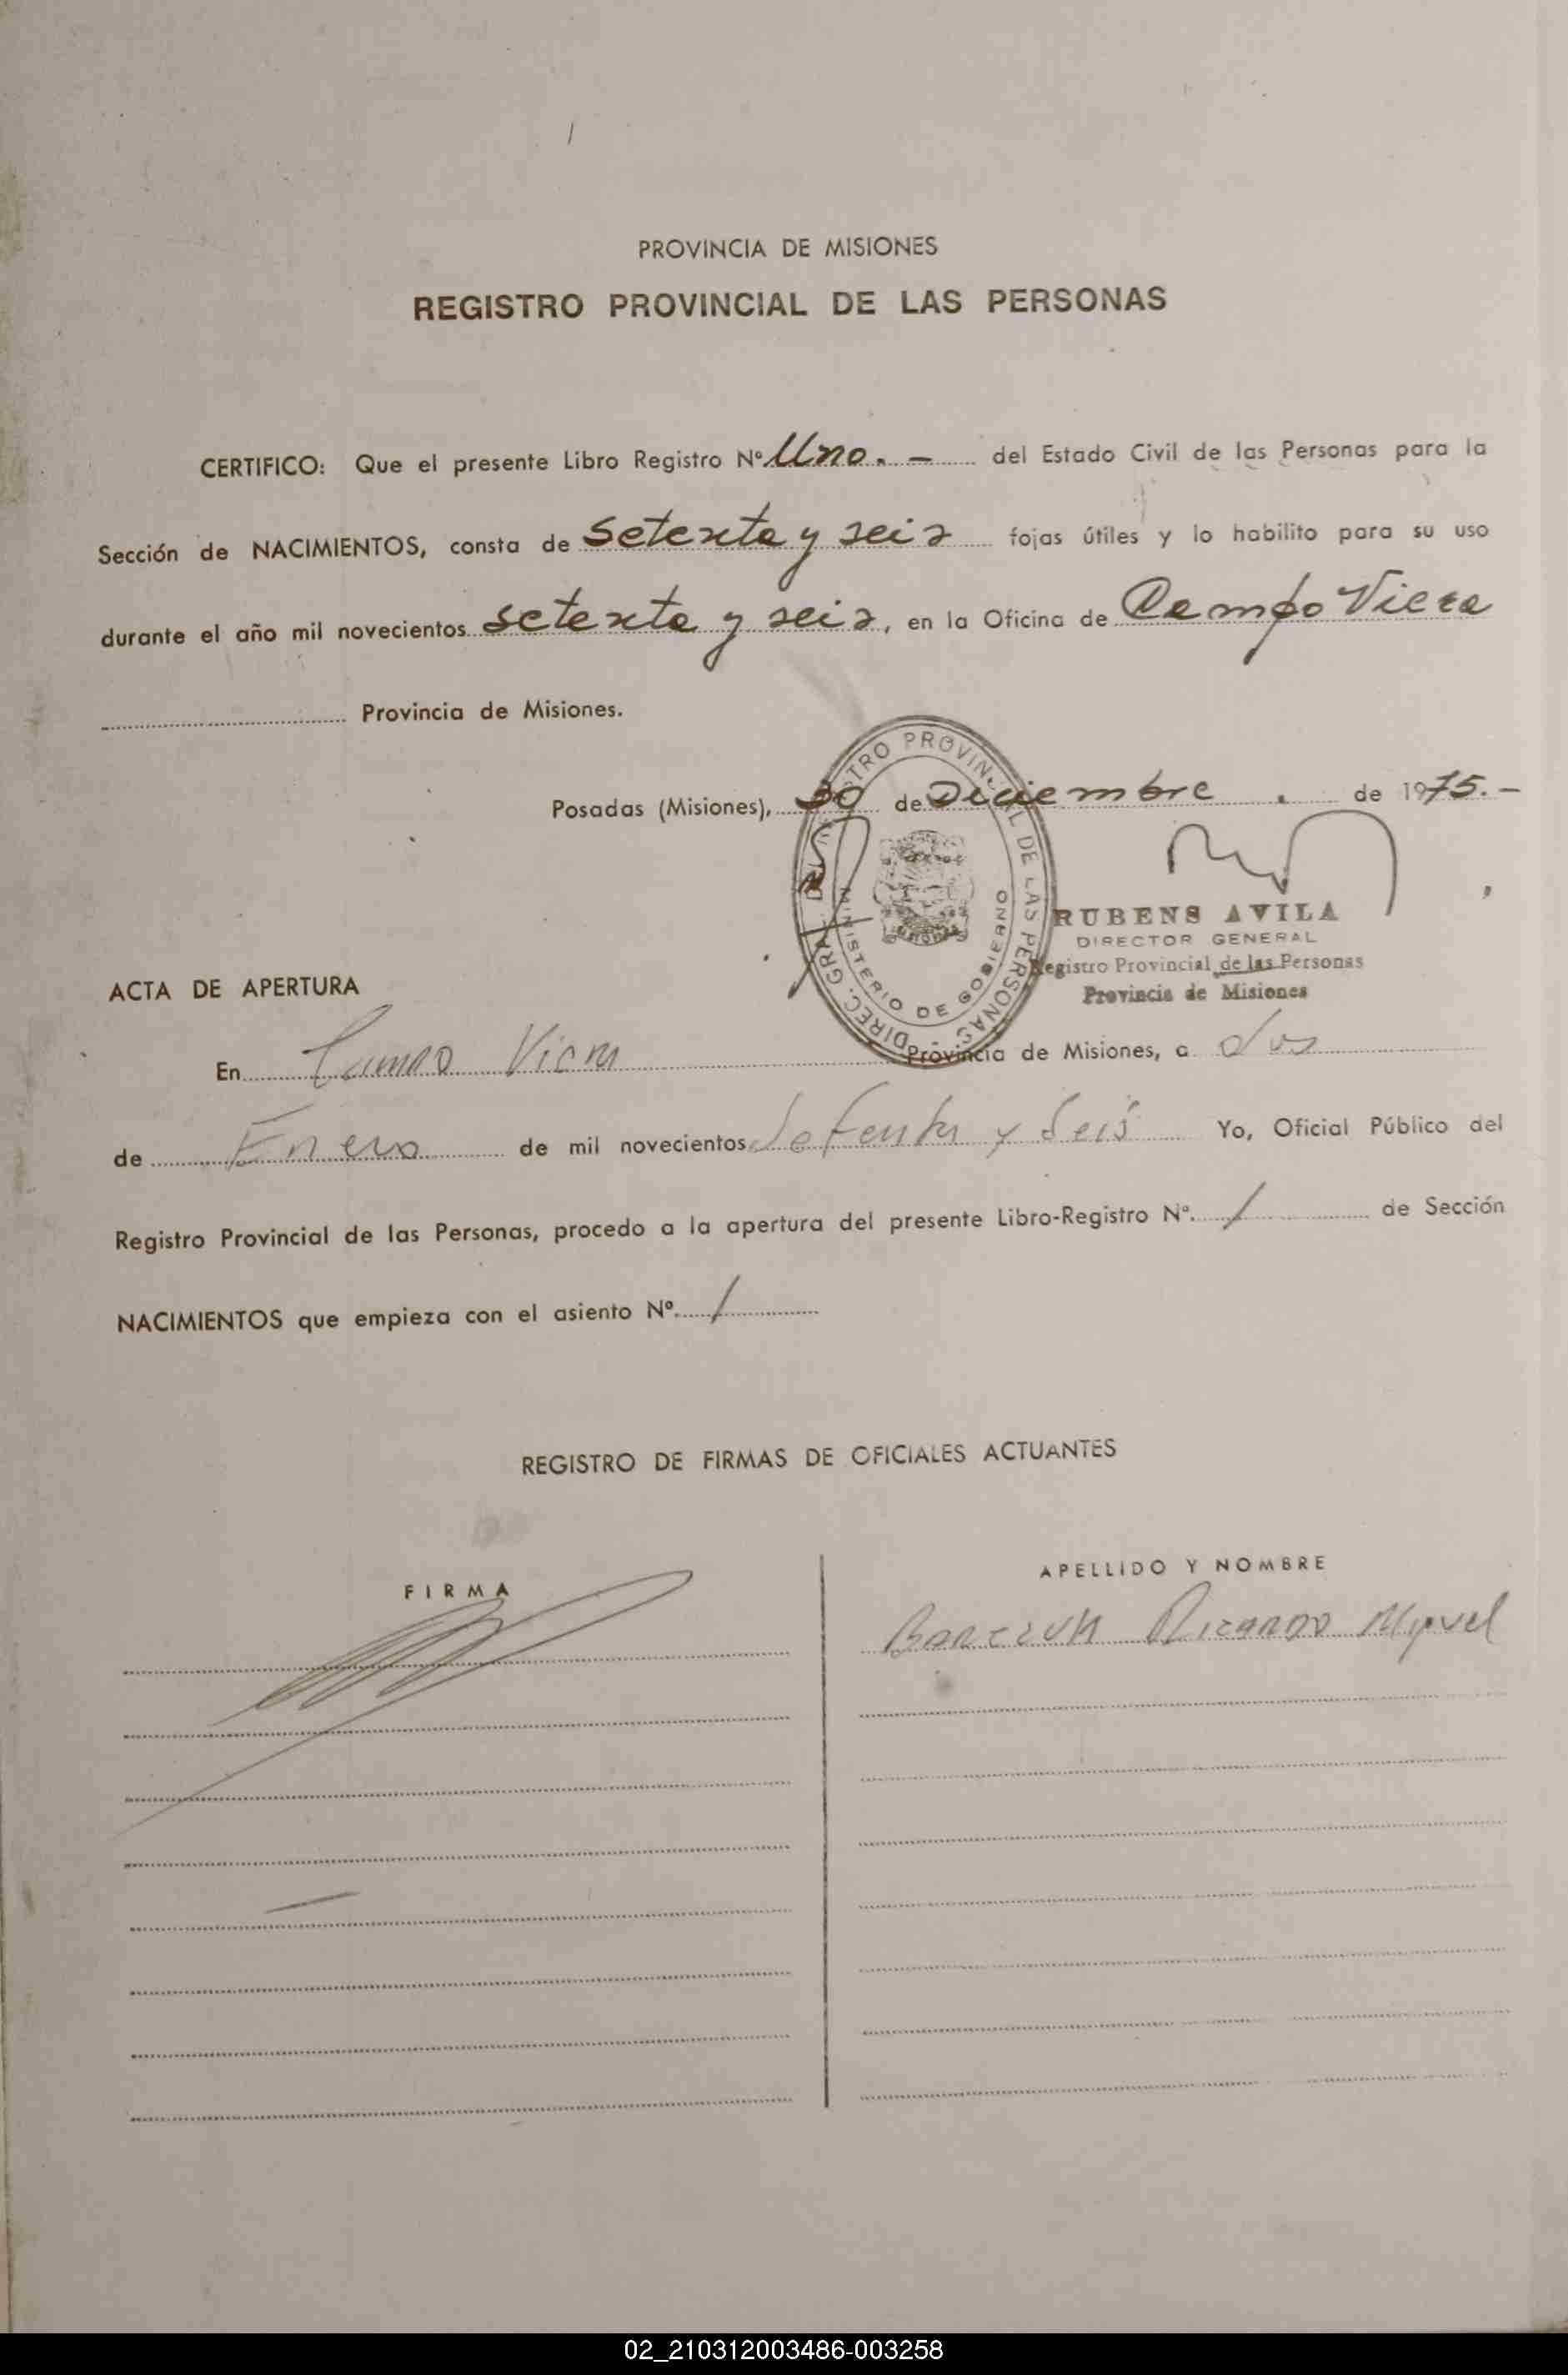 PROVINCIA DE MISIONES
REGISTRO PROVINCIAL DE LAS PERSONAS
CERTIFICO: Que el presente Libro Registro Nº Uno. - del Estado Civil de las Personas para la
Sección de NACIMIENTOS, consta de setenta y seis fojas útiles y lo habilito para su uso
durante el año mil novecientos setenta y seis, en la Oficina de Campo Viera
Provincia de Misiones.
Posadas (Misiones), 30 de Diciembre . de 1975.-
DIREC. GRAL. DEL REGISTRO PROVINCIAL DE LAS PERSONAS
MINISTERIO DE GOBIERNO
MISIONES
RUBENS AVILA
DIRECTOR GENERAL
Registro Provincial de las Personas
Provincia de Misiones
ACTA DE APERTURA
En Campo Viera Provincia de Misiones, a dos
de Enero de mil novecientos setenta y seis Yo, Oficial Público del
Registro Provincial de las Personas, procedo a la apertura del presente Libro-Registro Nº. 1 de Sección
NACIMIENTOS que empieza con el asiento Nº. 1
REGISTRO DE FIRMAS DE OFICIALES ACTUANTES
FIRMA
APELLIDO Y NOMBRE
Ricardo Miguel
02_210312003486-003258